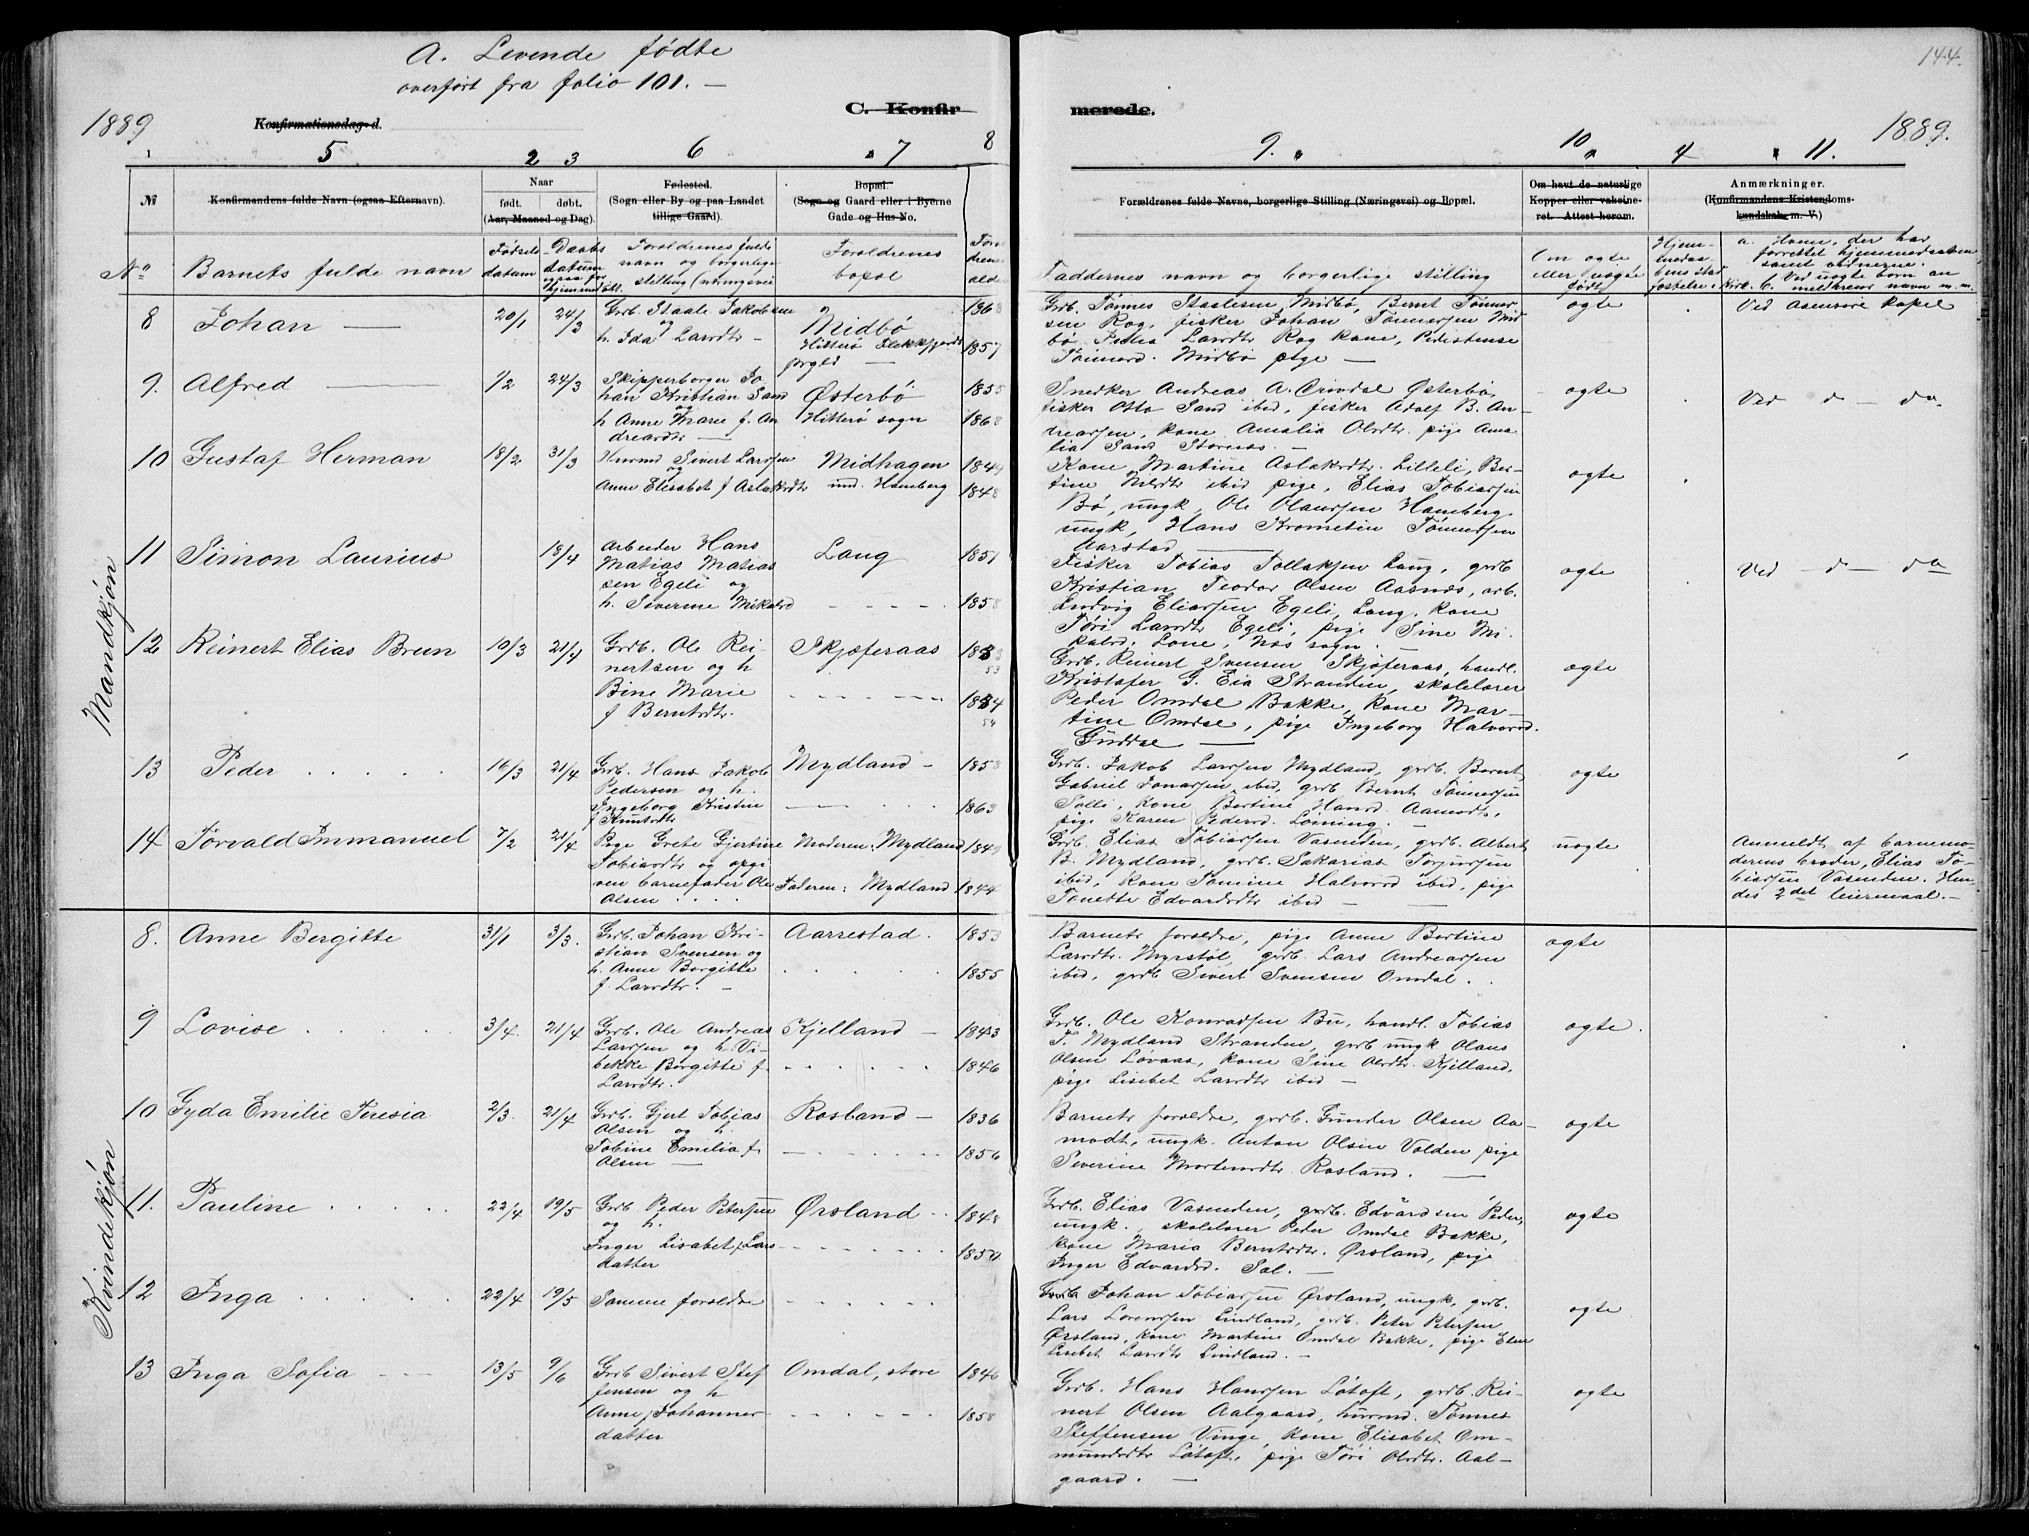 A. Levende fødte
overført fra folio 101. —
144.
1889
1889.
C. Konfir
merede.
Konfirmationsdag d.
1 5 2 3 6 7 8
9. 10 4 11.
№
Konfirmandens fulde Navn (ogsaa Efternavn).
Naar
født. døbt.
(Aar, Maaned og Dag).
Fødested.
(Sogn eller By og paa Landet
tillige Gaard).
Bopæl.
(Sogn og Gaard eller i Byerne
Gade og Hus-No.
Forældrenes fulde Navne, borgerlige Stilling (Næringsvei) og Bopæl.
Om havt de naturlige
Kopper eller vakcine-
ret. Attest herom.
Anmærkninger.
(Konfirmandens Kristendoms-
kundskab m. V.)
No
Barnets fulde navn
Fødsels
datum
Daabs
datum
Forældrenes fulde
navn og borgerlige
stilling (næringsvei
Forældrenes
bopæl
Faddernes navn og borgerlige stilling
Om ægte
eller uægte
født
Mandkjøn
8 Johan —
20/1 24/3
Grb. Staale Jakobsen
og
h. Ida Larsdtr —
Midbø
Hitterø Flekkfjords
prgld —
1868
1857
Grb. Tønnes Staalesen Midbø, Bernt Tønnes-
sen Rog, fisker Johan Tønnessen Mid
bø Petra Larsdtr Rog kone,
Midbø pige —
ægte
Ved Aaensire kapel
9. Alfred —
1/2 24/3
Skipperborger Jo
han Kristian Sand
og
h Anne Marie f. An
dreasdtr —
Østerbø
Hitterø sogn
1855
1868
Snedker Andreas A. Østerbø,
fisker Otto Sand ibid, fisker Adolf B. An-
dreassen, kone Amalia Olsdtr. pige Ama
lia Sand —
ægte
Ved — d — do
10 Gustaf Herman
18/2 31/3
Husmd Sivert Larssen
og
Anne Elisabet f Aslaksdtr
Midhagen
und. Hamberg
1849
1848
Kone Martine Aslaksdtr. Lilleli, Ber-
tine Nilsdtr ibid pige, Elias Tobiassen
Bø, ungk, Ole Olaussen Hamberg
ungk, Hans Krometin Tønnessen
Aarstad —
ægte
11 Simon Laurius
18/4
Arbeider Hans
Matias Matias
sen Egeli og
h. Severine Mikalsd
Laug
1851
1858
Fisker Tobias Tollaksen Laug, grb
Kristian Teodor Olsen Aasnæs, arb.
Ludvig Eliassen Egeli, Laug, kone
Tøri Larsdtr Egeli, pige Sine Mi-
kalsd. Lone, Næs sogn.
ægte
Ved — d — do
12 Reinert Elias Breen
10/3 21/4
Grb. Ole Rei-
nertsen og h
Bine Marie
f Berntsdtr.
Skjæferaas
53
54
Grb. Reinert Svensen Skjæferaas, handl.
Kristofer G. Eia Stranden, skolelærer
Peder Omdal Bakke, kone Mar-
tine Omdal, pige Ingeborg Halvorsd.
Guddal —
ægte
13 Peder . . . .
16/3 21/4
Grb. Hans Jakob
Pedersen og h.
Ingeborg Kristine
f Knutsdtr
Mydland —
1858
1863
Grb. Jakob Larssen Mydland, grb. Bernt
Gabriel Jonassen ibid, grb Bernt Tønnessen
Solli, kone Bertine Hansd. Aamodt,
pige Karen Pedersd. Løining. —
ægte
14 Torvald Immanuel
7/2 21/4
Pige Grete Gjertine
Tobiasdtr og opgi
ven barnefader Ole
Olsen . . . .
Moderen: Mydland
Faderen: Mydland
1849
1844
Grb. Elias Tobiassen Vasenden, grb. Albert
B. Mydland, grb. Sakarias Torjussen
ibid, kone Tomine Halvorsd ibid, pige
Tonette Edvardsdtr ibid —
uægte
Anmeldt af barnemo-
derens broder, Elias To-
biassen Vasenden. Hen-
des 2det leiermaal. —
Kvindekjøn
8. Anne Bergitte
31/1 3/3.
Grb. Johan Kri-
stian Svensen og
h. Anne Bergitte
f. Larsdtr. —
Aarrestad.
1853
1855
Barnets forældre, pige Anne Bertine
Larsdtr. Myrstøl, grb. Lars Andreassen
ibid, grb Sivert Svensen Omdal.
ægte
9 Lovise . . . .
3/4. 21/4
Grb. Ole Andreas
Larssen og h. Vi-
bekke Bergitte f.
Larsdtr.
Kjelland —
1843
1846
Grb. Ole Konradsen Bu, handl. Tobias
T. Mydland Stranden, grb ungk Olaus
Olsen Løvaas, kone Sine Olsdtr. Kjelland,
pige Lisebet Larsdtr ibid —
ægte.
10 Gyda Emilie Teresia
2/3. 21/4
Grb. Gjert Tobias
Olsen og h.
Tobine Emilia f.
Olsen —
Rosland —
1836
1856
Barnets forældre, grb. Gunder Olsen Aa-
modt, ungk. Anton Olsen Volden pige
Severine Mortensdtr. Rosland. —
ægte
11. Pauline . . . .
22/4 19/5
Grb Peder Petersen
og h.
Inger Lisabet, Lars-
datter
Ørsland
1848
1850
Grb. Elias Vasenden, grb. Edvardsen Peder,
ungk., skolelærer Peder Omdal Bakke,
kone Maria Berntsdtr. Ørsland, pige
Inger Edvardsd. Sal. —
ægte
12 Inga . . . .
22/4 19/5
Samme forældre
Grb Johan Tobiassen Ørsland, ungk, grb.
Lars Lorentsen Lindland, grb. Peter Petersen
Ørsland, kone Martine Omdal Bakke, pige Elen
Lisebet Larsdtr Lindland. —
ægte
13 Inga Sofia — —
13/5 9/6
Grb Sivert Stef
fensen og h
Anne, Johannes-
datter
Omdal, store
1846
1858
Grb. Hans Hanssen Løtoft, grb. Rei-
nert Olsen Aalgaard, husmd. Tønnes
Steffensen Vinge, kone Elisabet Om-
mundsdtr Løtoft, pige Tøri Olsdtr. Aal-
gaard. —
ægte